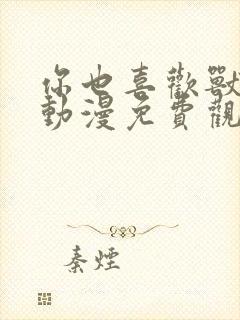 你也喜歡獸
動漫免費觀
秦煙